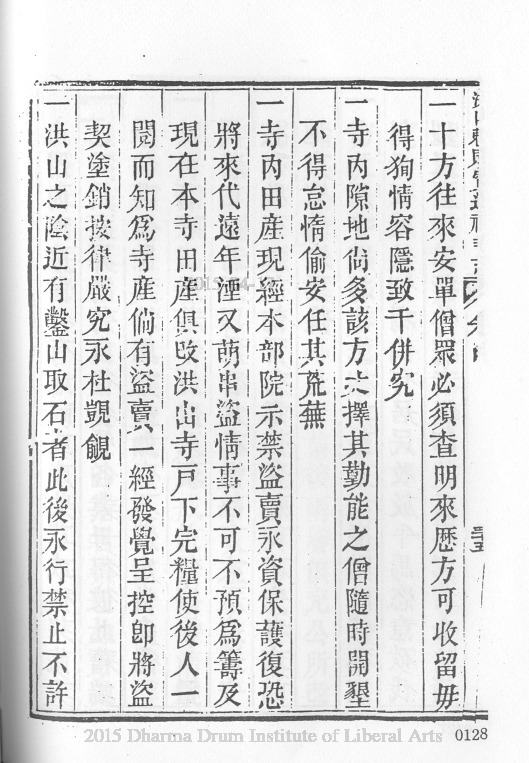 一十方往來安單僧眾必須查明來歷方可收留毋
得狥情容隱致干併究
一寺內隙地尙多該方丈擇其勤能之僧隨時開墾
不得怠惰偷安任其荒蕪
一寺內田產現經本部院示禁盜賣永資保護復恐
將來代遠年湮又萌串盜情事不可不預爲籌及
現在本寺田產俱改洪山寺戸下完糧使後人一
閱而知爲寺產倘有盜賣一經發覺呈控卽將盜
契塗銷按律嚴究永杜覬覦
一洪山之陰近有鑿山取石者此後永行禁止不許
2015 Dharma Drum Institute of Liberal Arts
0128